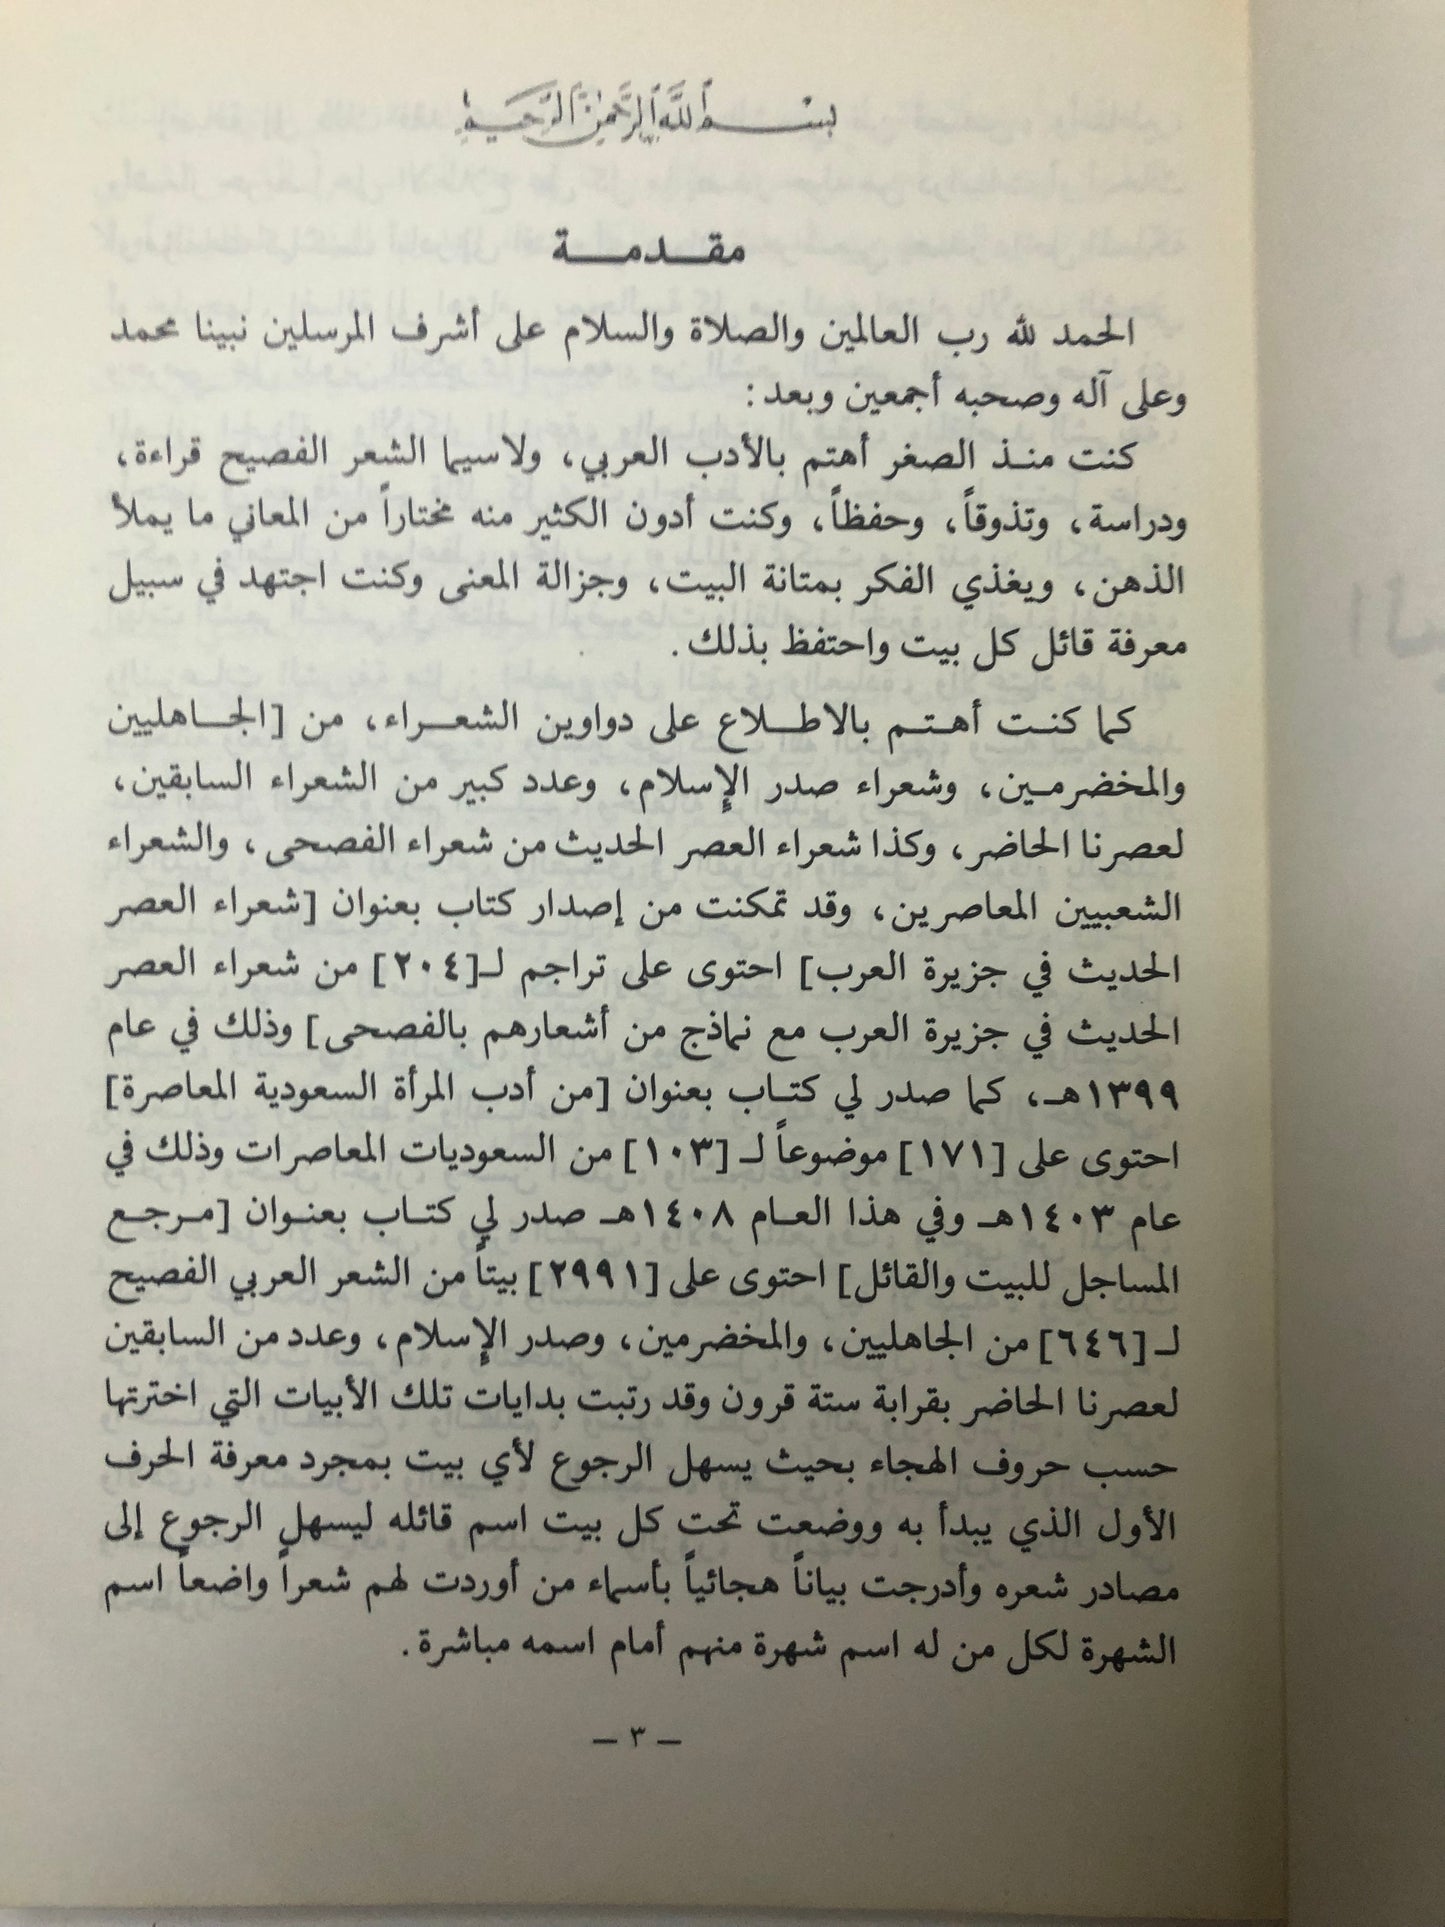 بسم الله الرحمن الرحيم
مقدمة
الحمد لله رب العالمين والصلاة والسلام على أشرف المرسلين نبينا محمد
وعلى آله وصحبه أجمعين وبعد:
كنت منذ الصغر أهتم بالأدب العربي، ولاسيما الشعر الفصيح قراءة،
ودراسة، وتذوقاً، وحفظاً، وكنت أدون الكثير منه مختاراً من المعاني ما يملأ
الذهن، ويغذي الفكر بمتانة البيت، وجزالة المعنى وكنت اجتهد في سبيل
معرفة قائل كل بيت واحتفظ بذلك.
كما كنت أهتم بالاطلاع على دواوين الشعراء، من [الجاهليين
والمخضرمين، وشعراء صدر الإسلام، وعدد كبير من الشعراء السابقين،
لعصرنا الحاضر، وكذا شعراء العصر الحديث من شعراء الفصحى، والشعراء
الشعبيين المعاصرين، وقد تمكنت من إصدار كتاب بعنوان [شعراء العصر
الحديث في جزيرة العرب] احتوى على تراجم لـ[٢٠٤] من شعراء العصر
الحديث في جزيرة العرب مع نماذج من أشعارهم بالفصحى] وذلك في عام
١٣٩٩هـ، كما صدر لي كتاب بعنوان [من أدب المرأة السعودية المعاصرة]
احتوى على [١٧١] موضوعاً لـ [١٠٣] من السعوديات المعاصرات وذلك في
عام ١٤٠٣هـ وفي هذا العام ١٤٠٨هـ صدر لي كتاب بعنوان [مرجع
المساجل للبيت والقائل] احتوى على [٢٩٩١] بيتاً من الشعر العربي الفصيح
لـ [٦٤٦] من الجاهليين، والمخضرمين، وصدر الإسلام، وعدد من السابقين
لعصرنا الحاضر بقرابة ستة قرون وقد رتبت بدايات تلك الأبيات التي اخترتها
حسب حروف الهجاء بحيث يسهل الرجوع لأي بيت بمجرد معرفة الحرف
الأول الذي يبدأ به ووضعت تحت كل بيت اسم قائله ليسهل الرجوع إلى
مصادر شعره وأدرجت بياناً هجائياً بأسماء من أوردت لهم شعراً واضعاً اسم
الشهرة لكل من له اسم شهرة منهم أمام اسمه مباشرة.
— ٣ —